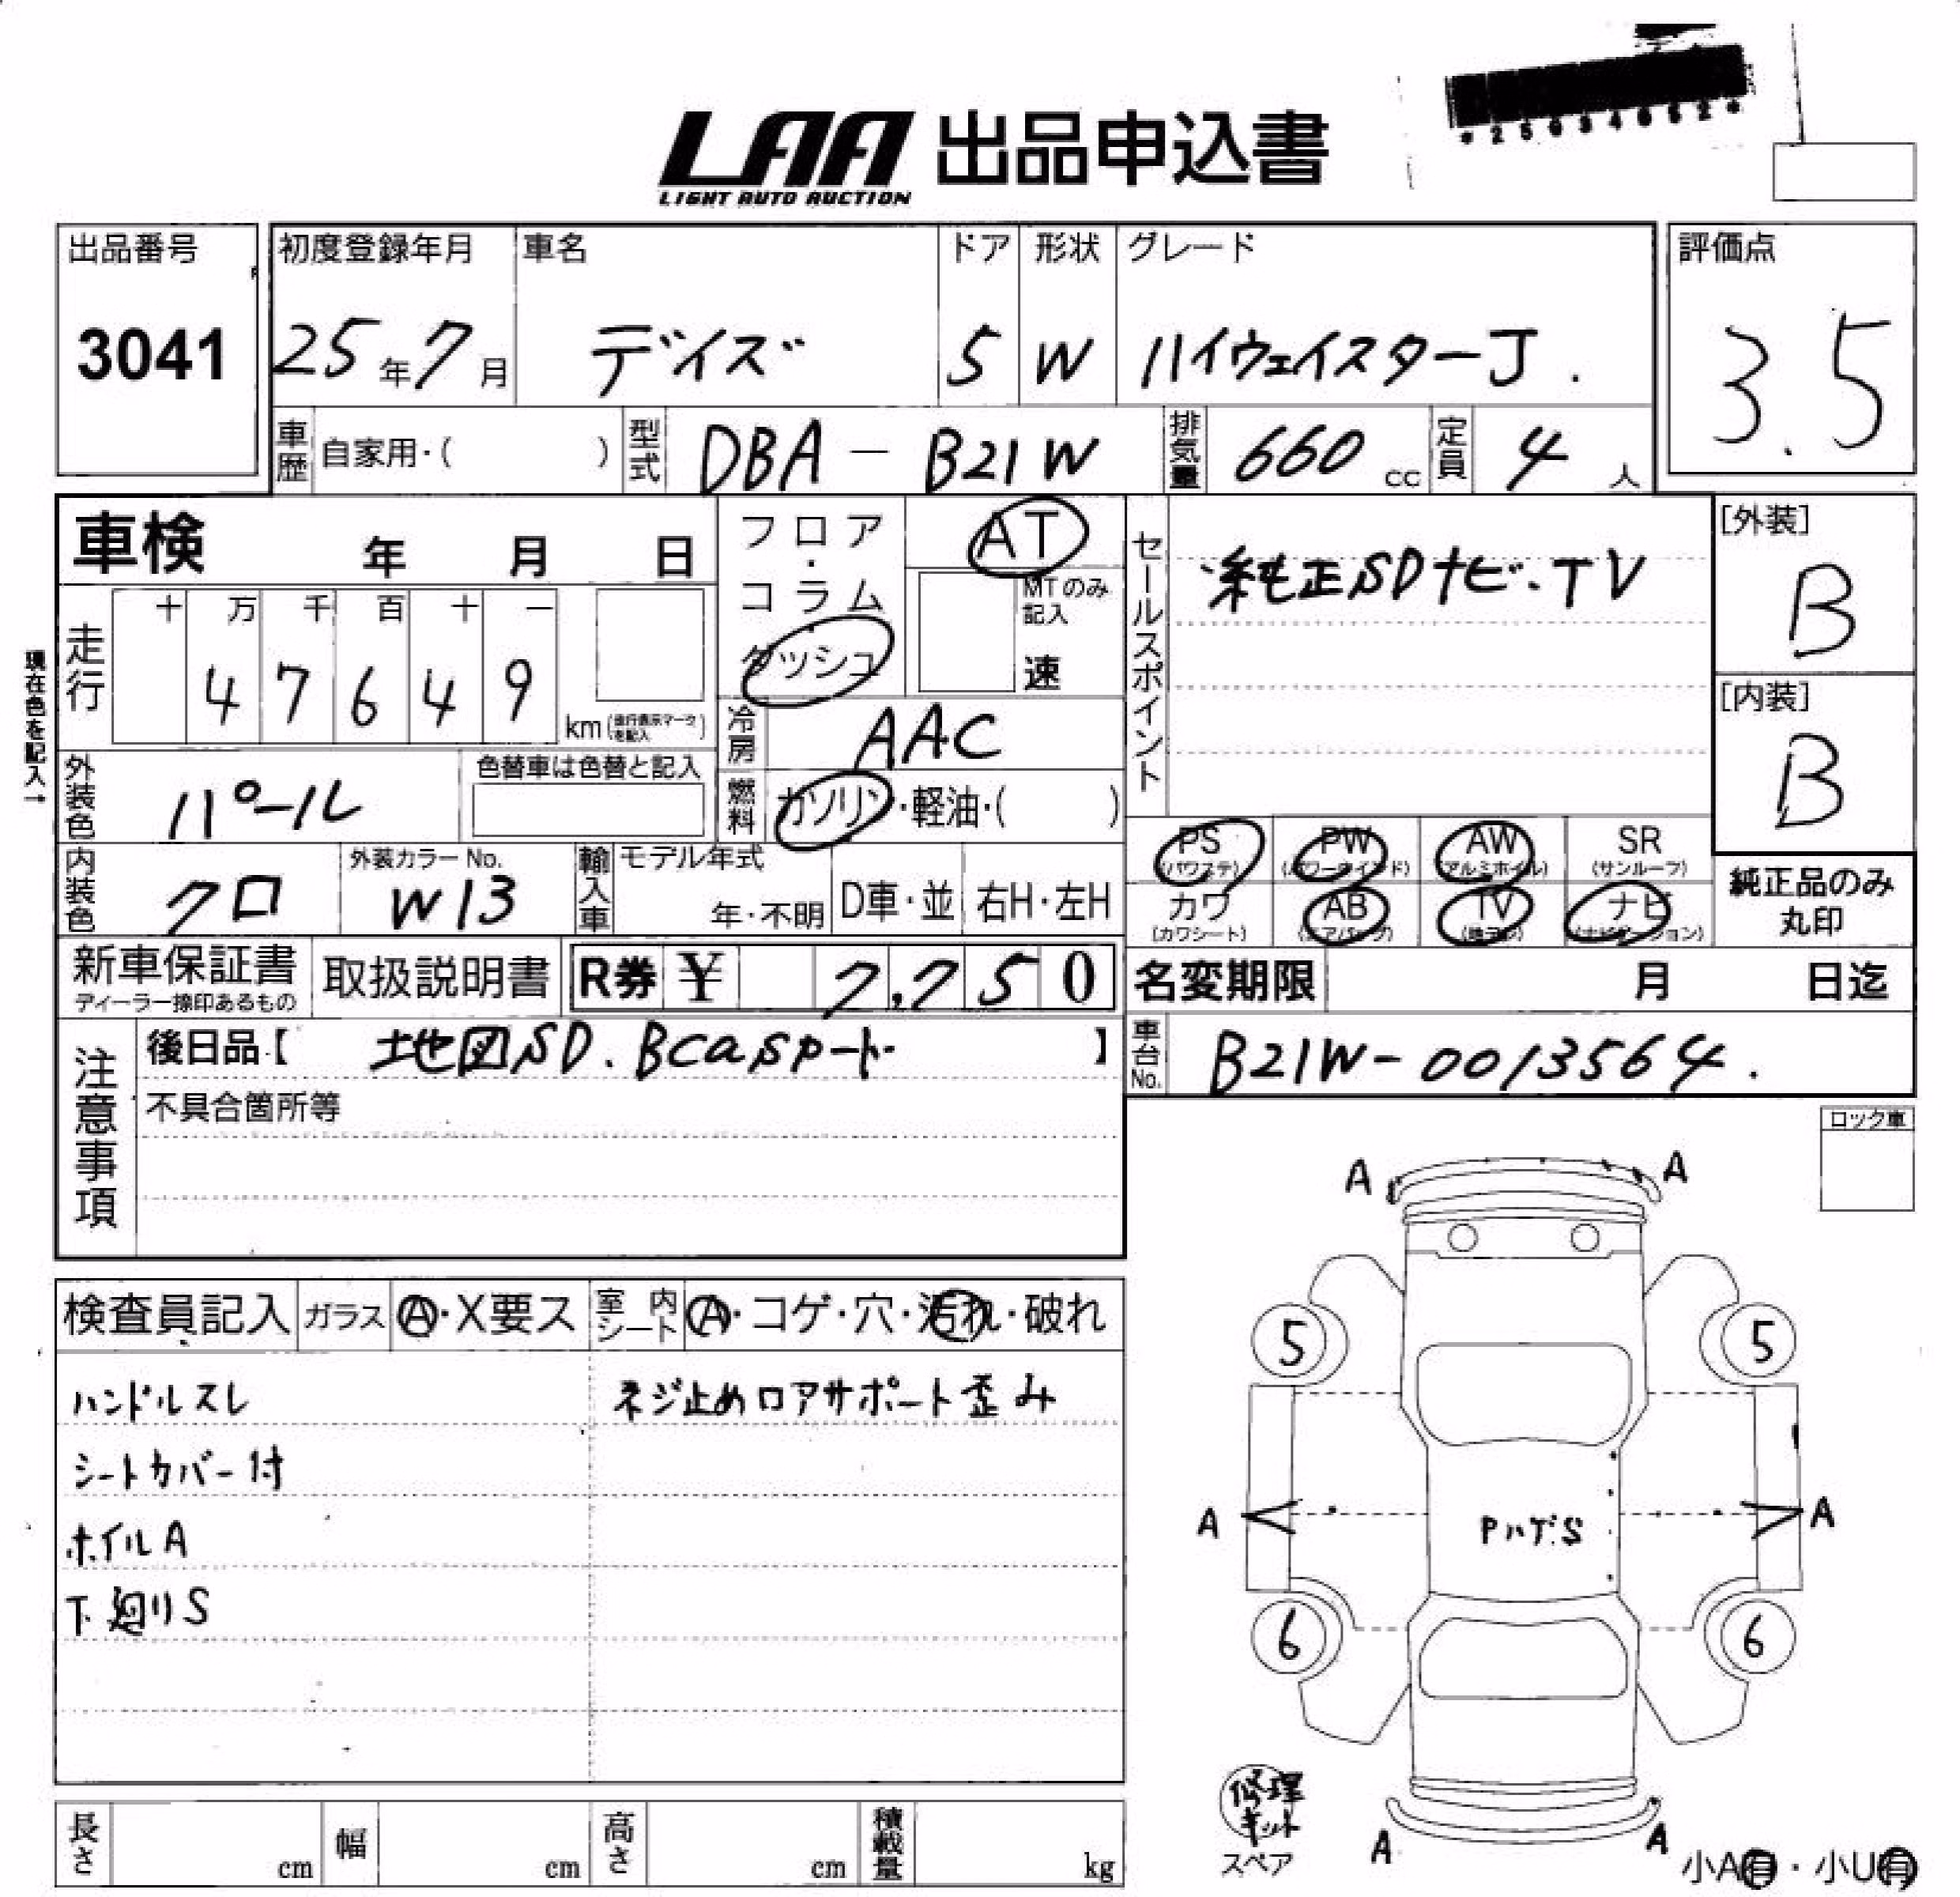 *25034052*
LAA 出品申込書
LIGHT AUTO AUCTION
出品番号 初度登録年月 車名 ドア 形状 グレード 評価点
3041 25年7月 デイズ 5 W ハイウェイスターJ. 3.5
車歴 自家用・( ) 型式 DBA-B21W 排気量 660cc 定員 4人
車検 年 月 日
フロア・コラム ダッシュ
AT
MTのみ記入
速
セールスポイント
純正SDナビ・TV
[外装]
B
[内装]
B
現在色を記入→
走行 十 万 千 百 十 一
4 7 6 4 9 km(走行表示マークを記入)
冷房 AAC
外装色 パール 色替車は色替と記入
燃料 ガソリン・軽油・( )
PS (パワステ) PW (パワーウインド) AW (アルミホイル) SR (サンルーフ)
カワ (カワシート) AB (エアバッグ) TV (地デジ) ナビ (ナビゲーション)
純正品のみ
丸印
内装色 クロ 外装カラーNo. W13 輸入車 モデル年式 年・不明 D車・並 右H・左H
新車保証書 ディーラー捺印あるもの 取扱説明書 R券 ¥ 7,250
名変期限 月 日迄
注意事項
後日品【 地図SD.Bcasカート 】
車台No. B21W-0013564.
不具合箇所等
ロック車
検査員記入 ガラス A・X要ス 室内シート A・コゲ・穴・汚れ・破れ
ハンドルスレ ネジ止めロアサポート歪み
シートカバー付
ホイルA
下廻りS
A A
5 5
A PハゲS A
6 6
修理
キット
スペア
A A
小A有・小U有
長さ cm 幅 cm 高さ cm 積載量 kg